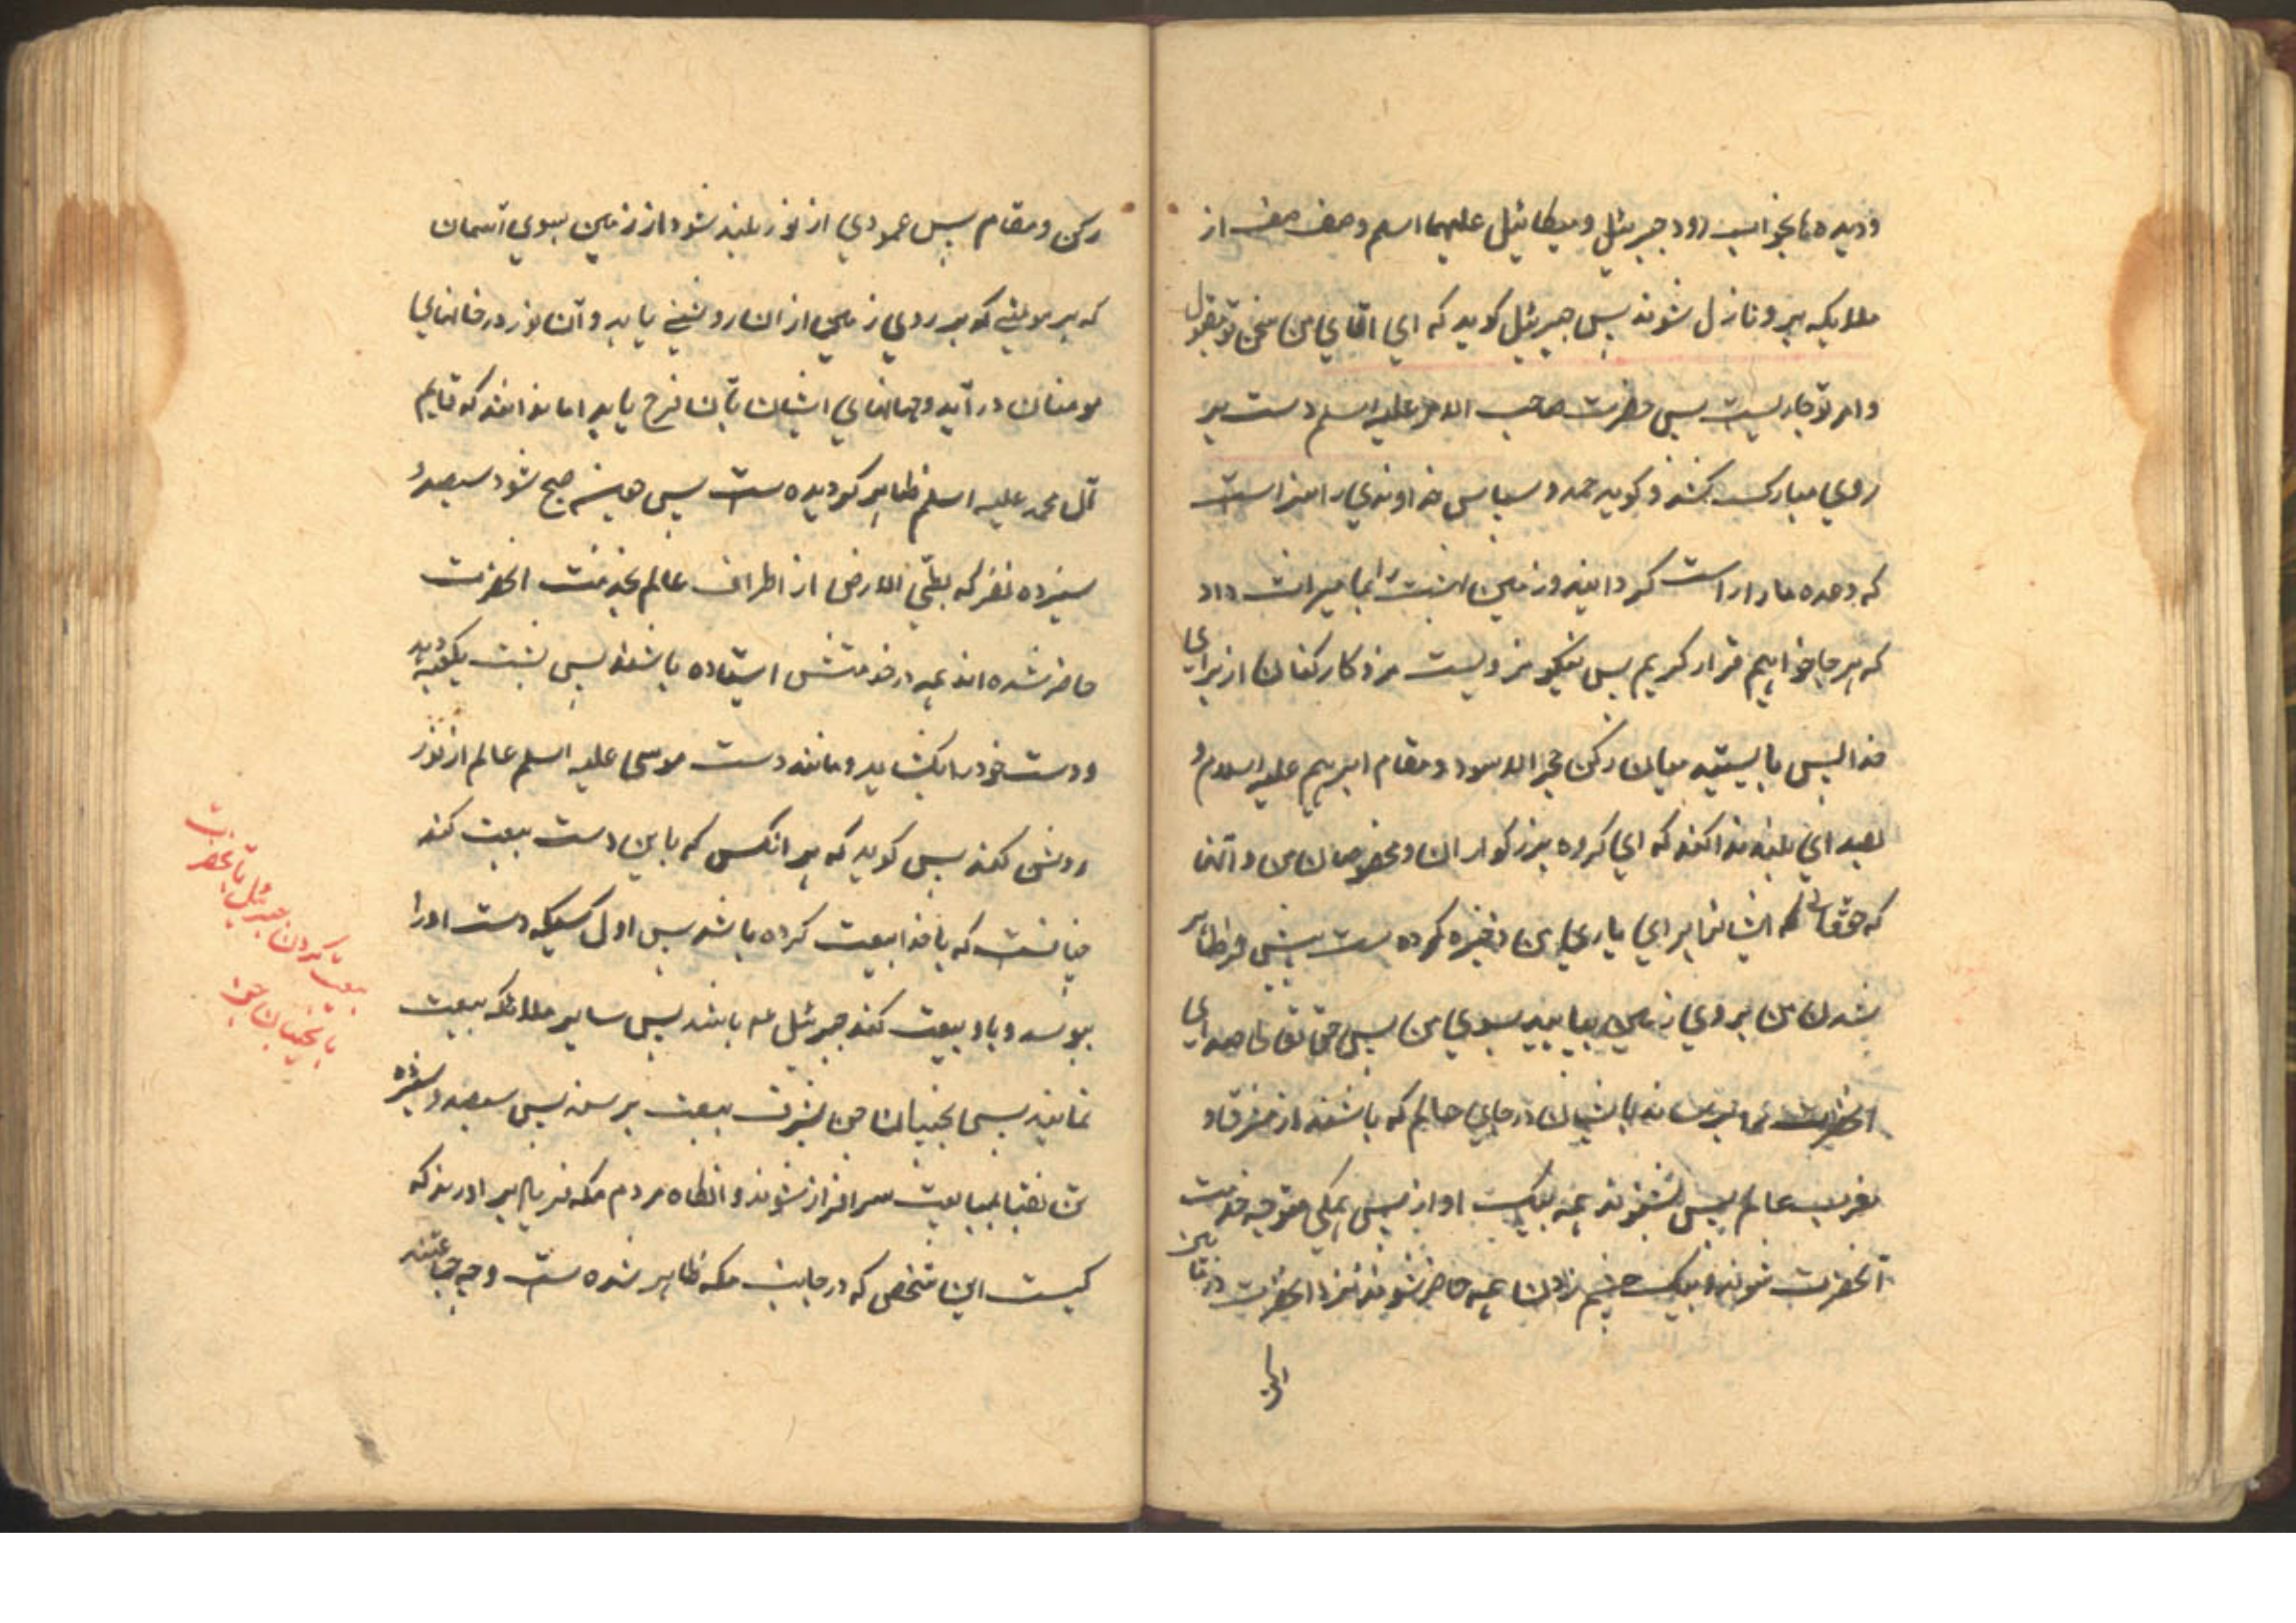 و دیده ها بخواب رود جبرئیل و میکائیل علیهما اسلم و صف صف از
ملایکه برو نازل شوند پس جبرئیل کوید که ای اقای من سخن تو مقبول
و امر تو جاریست پس حضرت صاحب الامر علیه اسلم دست بر
روی مبارک کشد و کوید حمد و سپاس خداوندی را سزاست
که وعده ما را راست کردانید و زمین بهشت را بما میراث داد
که هر جا خواهیم قرار کریم پس نیکو مزدیست مزد کارکنان از برای
خدا پس بایستد میان رکن حجر الاسود و مقام ابرهیم علیه السلام و
بصدای بلند ندا کند که ای کروه بزرکواران و مخصوصان من و آنها
که حقتعالی ایشانرا برای یاری من ذخیره کرده ست پیش از ظاهر
شدن من بر روی زمین بیایید بسوی من پس حق تعالی صدای
انحضرت را برساند بایشان در جای حالم که باشند از مشرق و
مغرب عالم پس بشنوند همه بیک اواز پس همکی متوجه خدمت
آنحضرت شوند و بیک چشم زدن همه حاضر شوند نزد انحضرت در مابین
رکن و مقام پس عمودی از نور بلند شود از زمین بسوی آسمان
که هر مومنی که بر روی زمین از ان روشنی یابد و آن نور در خانهای
مومنان در آید و جانهای ایشان بآن فرح یابد اما ندانند که قایم
آل محمد علیه اسلم ظاهر کردیده ست پس صبح شود سیصد و
سیزده نفر که بطی الارض از اطراف عالم بخدمت انحضرت
حاضر شده اند همه در خدمتش استاده باشند پس پشت بکعبه دهد
و دست خود را بکشاید و مانند دست موسی علیه اسلم عالم از نور
روشن کند پس کوید که هر انکس که باین دست بیعت کند
چنانست که با خدا بیعت کرده باشد پس اول کسیکه دست او را
ببوسد و باو بیعت کند جبرئیل عم باشد پس سایر ملائکه بیعت
نمایند پس نجیبان جن بشرف بیعت برسند پس سیصد و سیزده
تن نقبا بمبایعت سرافراز شوند و انکاه مردم مکه فریاد بر اورند که
کیست این شخص که در جانب مکه ظاهر شده ست و چه جماعتند
بیعت کردن جبرئیل بآنحضرت
با نجیبان جن